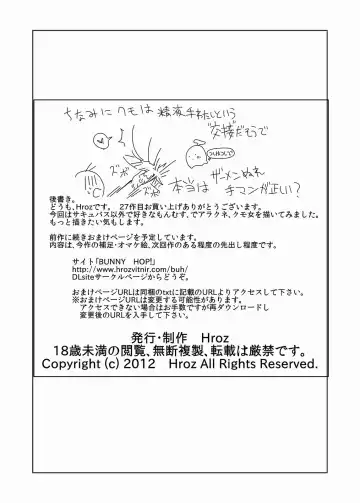 ちなみにクモは精液手わたしという
交接だそうで
ズボ
ズボ
本当はザーメンぬれ
手マンが正しい?
後書き。
どうも、Hrozです。 27作目お買い上げありがとうございます。
今回はサキュバス以外で好きなもんむす、でアラクネ、クモ女を描いてみました。
もっと描きたい気もします。
前作に続きおまけページを予定しています。
内容は、今作の補足・オマケ絵、次回作のある程度の先出し程度です。
サイト「BUNNY HOP!」
http://www.hrozvitnir.com/buh/
DLsiteサークルページからどうぞ。
おまけページURLは同梱のtxtに記載のURLよりアクセスして下さい。
※おまけページURLは変更する可能性があります。
アクセスできない場合はお手数ですが再ダウンロードし
変更後のURLを入手して下さい。
発行・制作 Hroz
18歳未満の閲覧、無断複製、転載は厳禁です。
Copyright (c) 2012 Hroz All Rights Reserved.